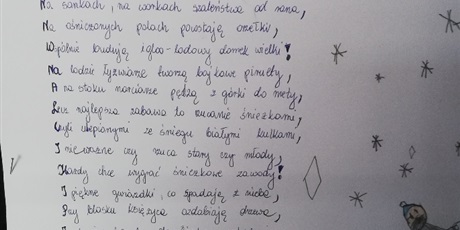 Na sankach, na workach szaleństwa od rana,
Na ośnieżonych polach powstają orzełki,
Wspólnie budują igloo - lodowy domek wielki!
Na lodzie łyżwiarze tworzą bajkowe piruety,
A na stoku narciarze pędzą z górki do mety,
Lecz najlepsza zabawa to rzucanie śnieżkami,
Czyli ulepionymi ze śniegu białymi kulkami,
I nieważne czy rzuca stary czy młody,
Każdy chce wygrać śnieżkowe zawody!
I piękne gwiazdki, co spadają z nieba,
Przy blasku księżyca ozdabiają drzewa,